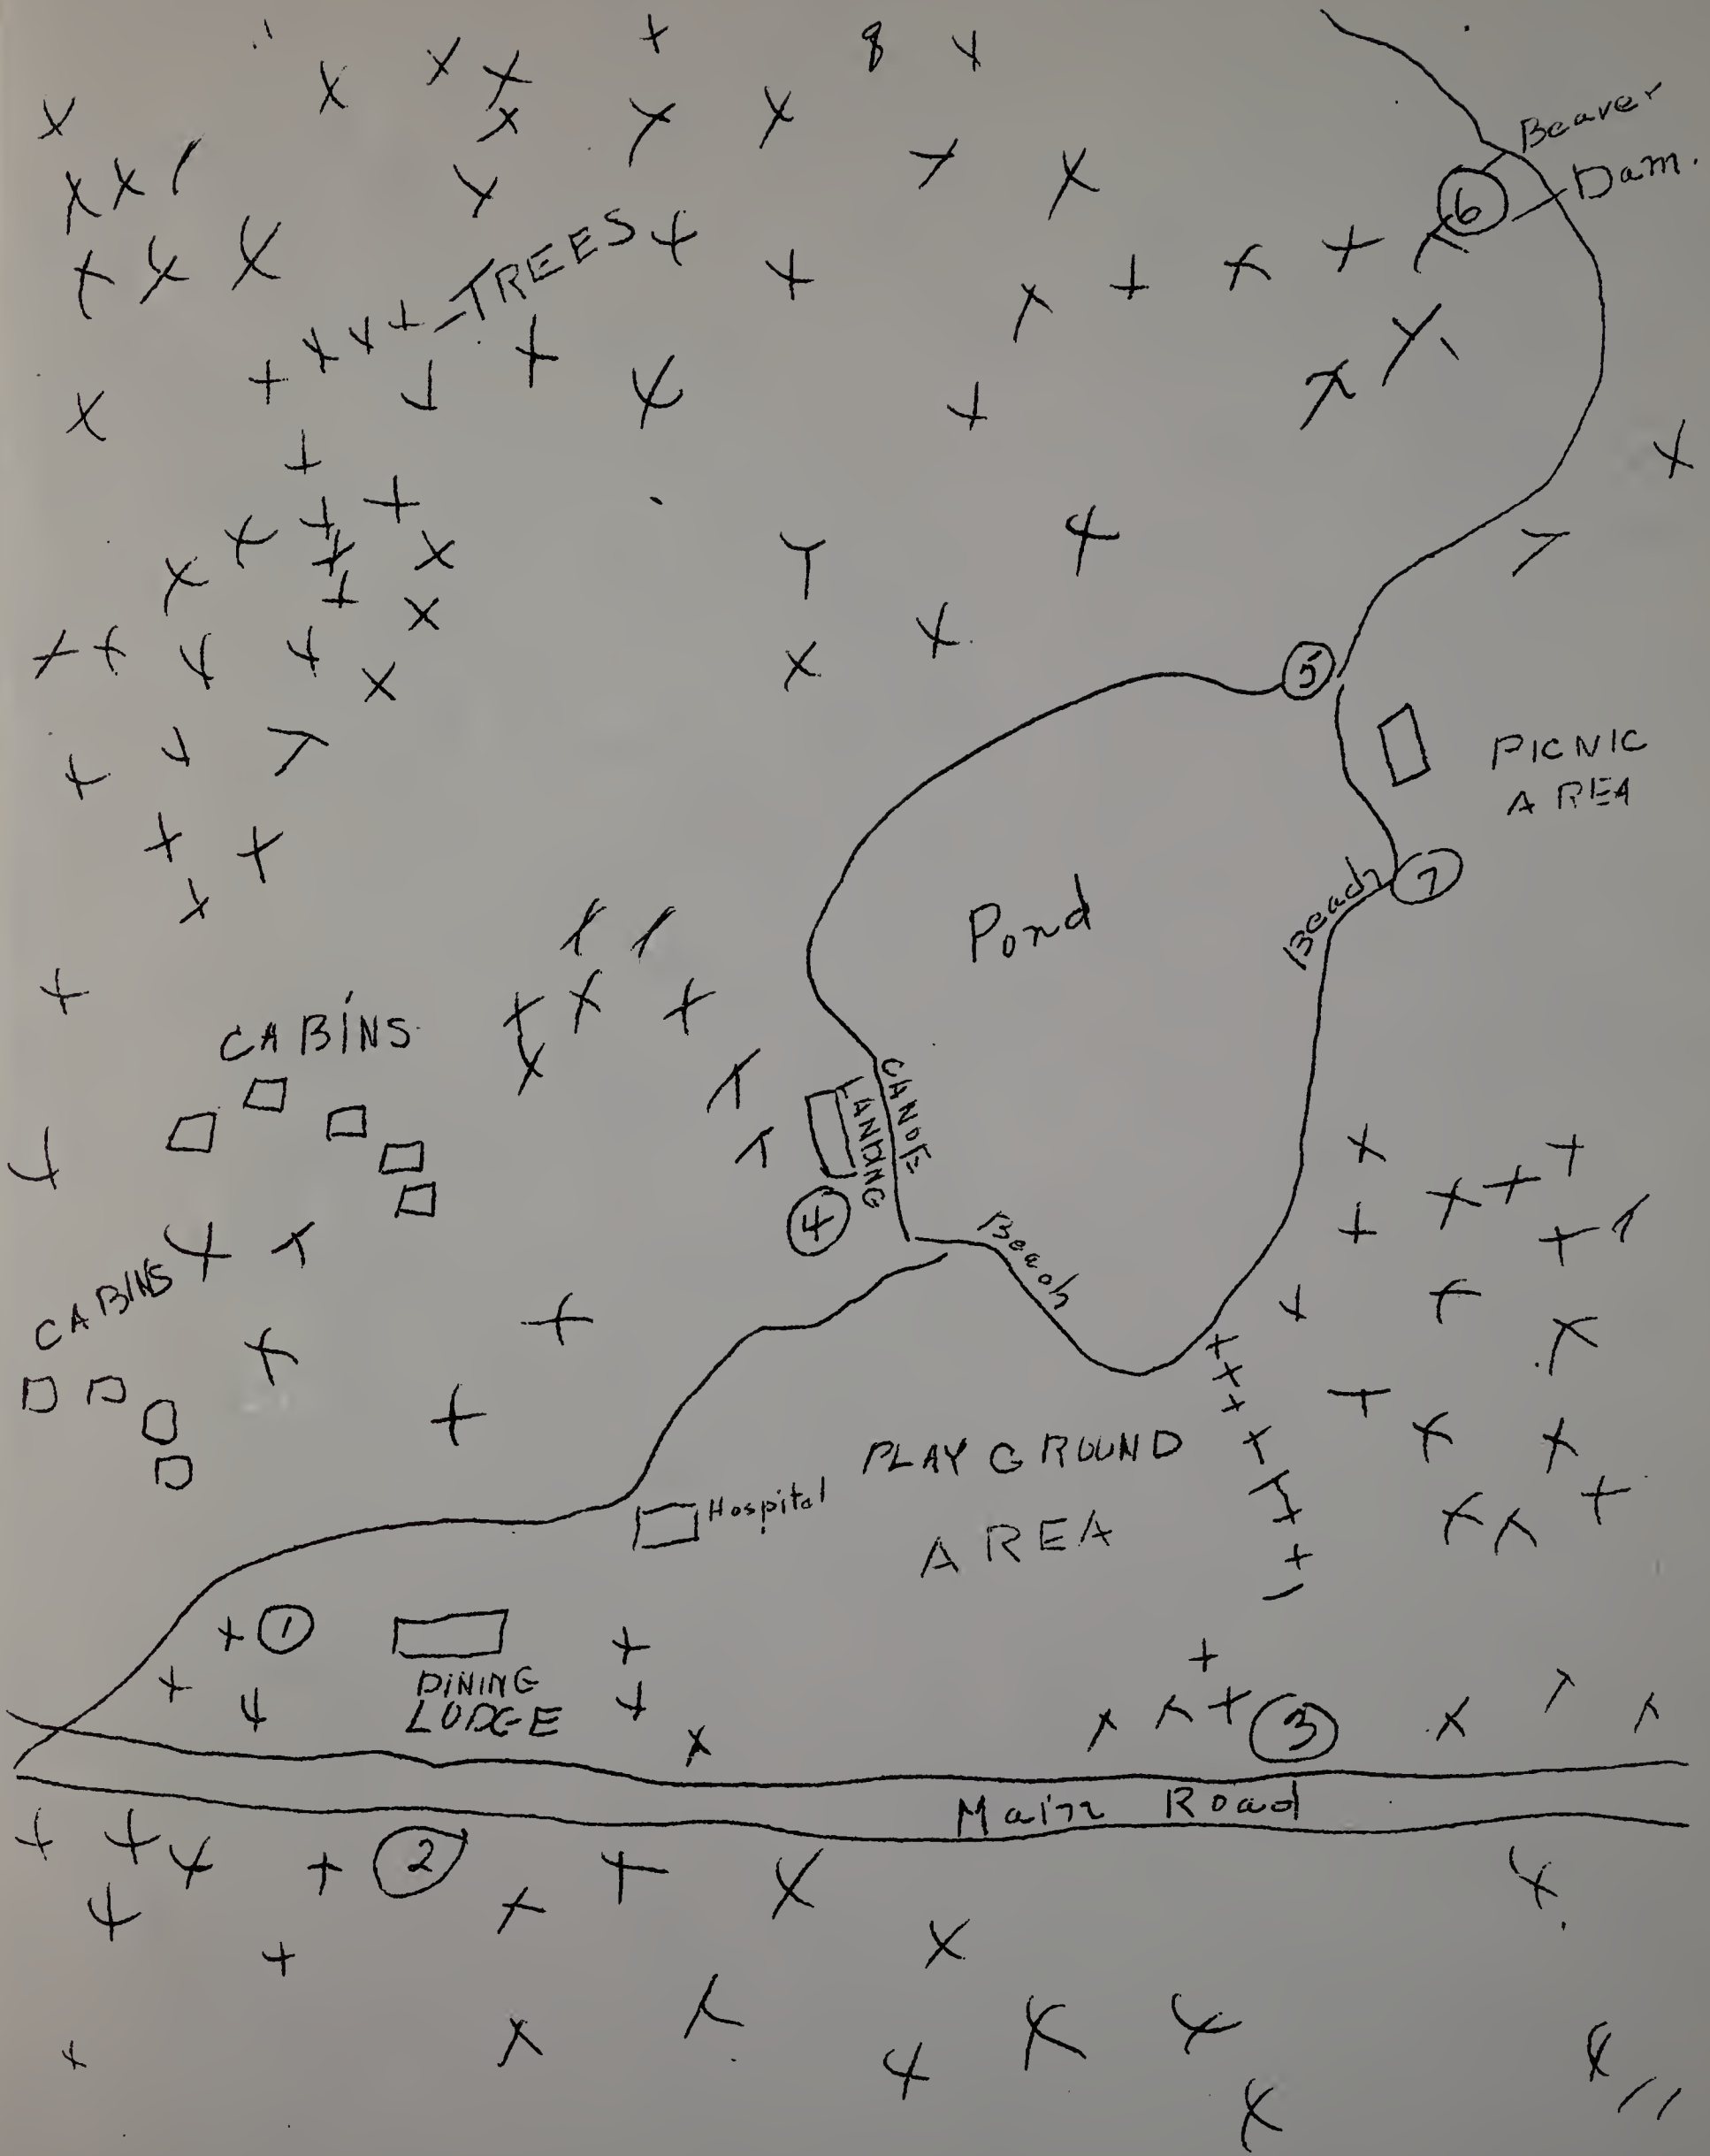 Beaver
Dam.
6
TREES
5
PICNIC
AREA
7
Beach
Pond
CABINS
CANOE
LANDING
4
Beach
CABINS
PLAYGROUND
AREA
Hospital
1
DINING
LODGE
3
Main Road
2